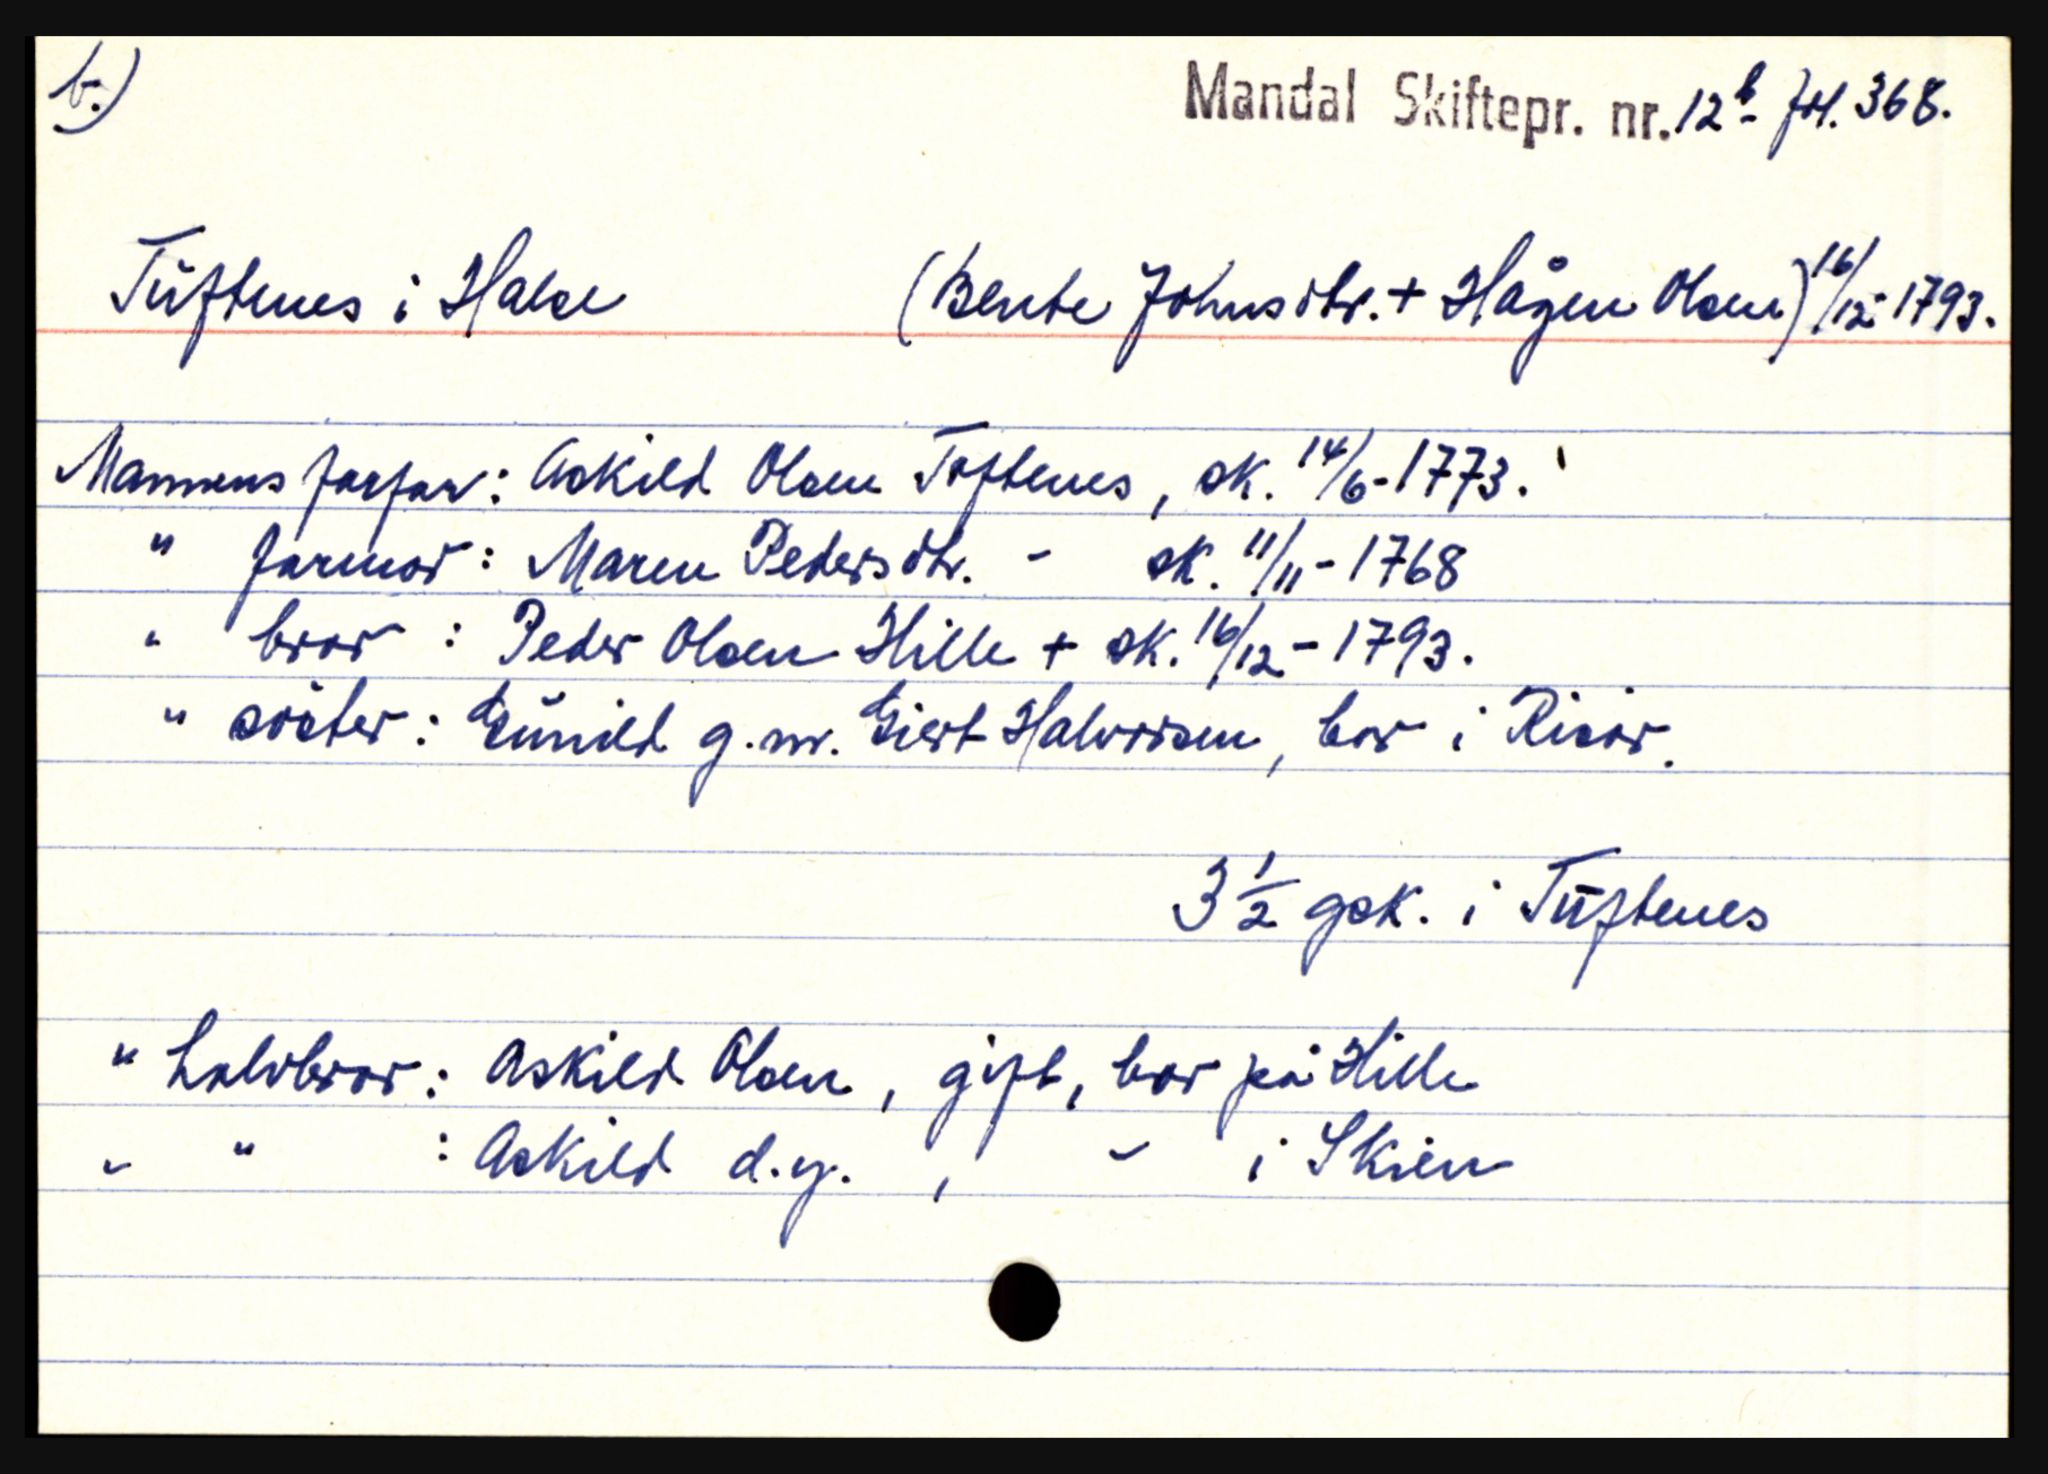 b.)
Mandal Skiftepr. nr. 12b- fol. 368.
Tuftenes i Halse (Bente Johnsdtr. + Hågen Olsen) 16/12-1793.
Mannens farfar: Askild Olsen Toftenes, sk. 14/6-1773.
" farmor: Maren Pedersdtr. - sk. 11/11-1768
" bror : Peder Olsen Hille + sk. 16/12-1793.
" söster: Gunild g.m. Giert Halvorsen, bor i Risör.
3 1/2 gsk. i Tuftenes
" halvbror: Askild Olsen, gift, bor på Hille
" " : Askild d.y. , " i Skien